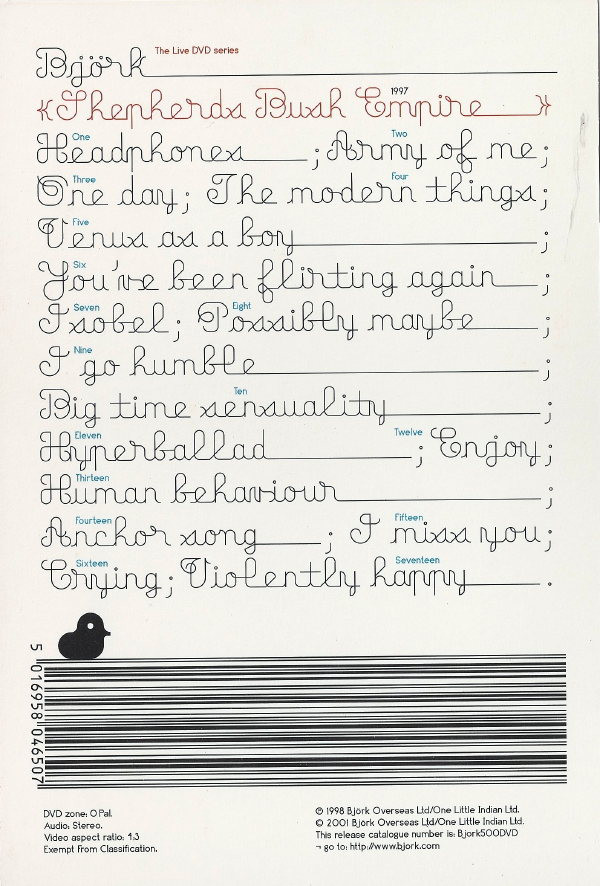 Björk The Live DVD series
«Shepherds Bush Empire 1997»
One Headphones; Two Army of me;
Three One day; Four The modern things;
Five Venus as a boy;
Six You've been flirting again;
Seven Isobel; Eight Possibly maybe;
Nine I go humble;
Ten Big time sensuality;
Eleven Hyperballad; Twelve Enjoy;
Thirteen Human behaviour;
Fourteen Anchor song; Fifteen I miss you;
Sixteen Crying; Seventeen Violently happy.
5 016958 046507
DVD zone: 0 Pal.
Audio: Stereo.
Video aspect ratio: 4:3
Exempt From Classification.
℗ 1998 Björk Overseas Ltd/One Little Indian Ltd.
© 2001 Björk Overseas Ltd/One Little Indian Ltd.
This release catalogue number is: Bjork500DVD
¬ go to: http://www.bjork.com